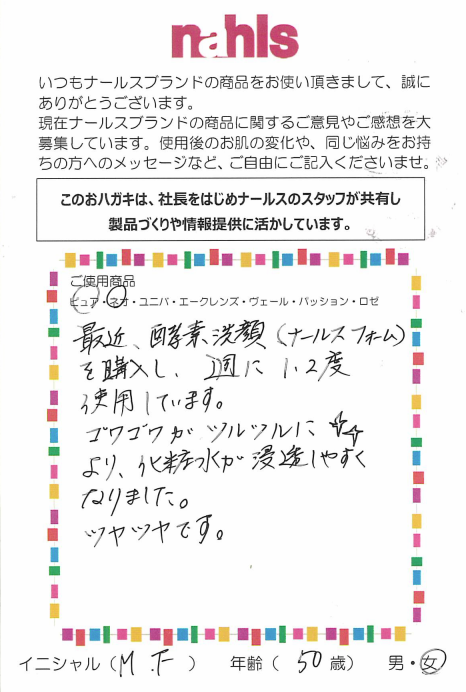 nahls
いつもナールスブランドの商品をお使い頂きまして、誠に
ありがとうございます。
現在ナールスブランドの商品に関するご意見やご感想を大
募集しています。使用後のお肌の変化や、同じ悩みをお持
ちの方へのメッセージなど、ご自由にご記入くださいませ。
このおハガキは、社長をはじめナールスのスタッフが共有し
製品づくりや情報提供に活かしています。
ご使用商品
ピュア・ネオ・ユニバ・エークレンズ・ヴェール・パッション・ロゼ
最近、酵素洗顔(ナールスフォーム)
を購入し、週に1.2度
使用しています。
ゴワゴワがツルツルに☆☆
より、化粧水が浸透しやすく
なりました。
ツヤツヤです。
イニシャル(M.F) 年齢(50歳) 男・女